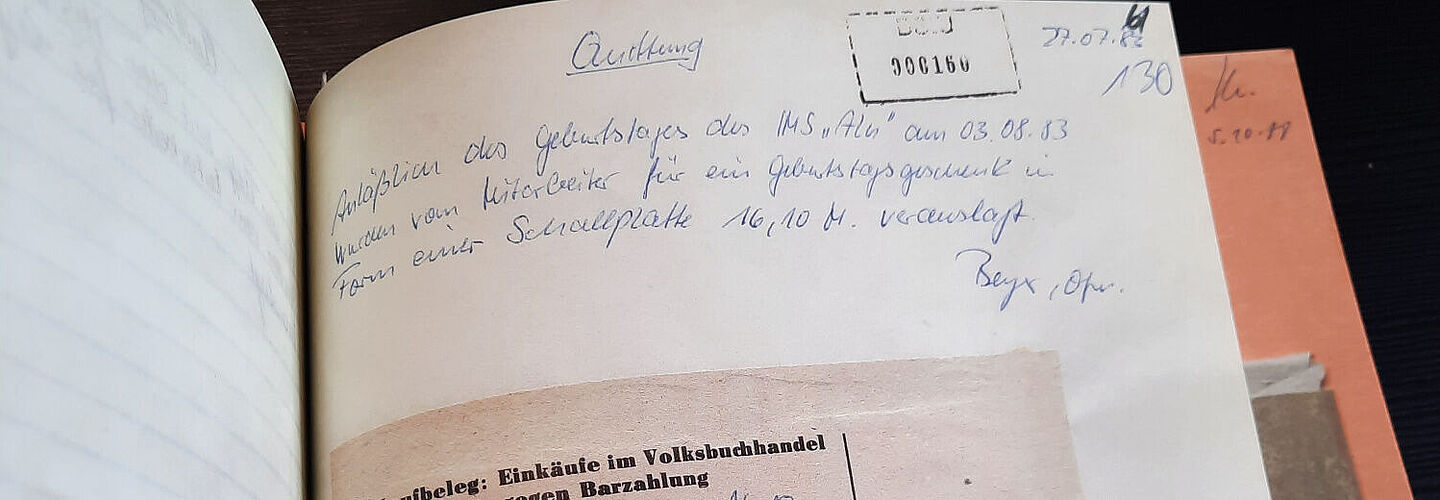 Quittung
BStU
000160
27.07.83
130
Anläßlich des Geburtstages des IMS „Alu“ am 03.08.83
wurden vom Mitarbeiter für ein Geburtstagsgeschenk in
Form einer Schallplatte 16,10 M. verauslagt.
Beyx, Ofw.
5.10.88
Kaufbeleg: Einkäufe im Volksbuchhandel
gegen Barzahlung